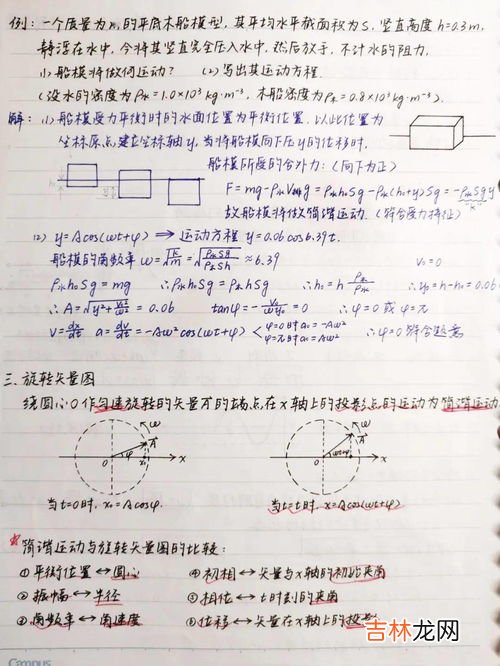 例：一个质量为m的平底木船模型，其平均水平截面积为S，竖直高度 h=0.3m，
静浮在水中，今将其竖直完全压入水中，然后放手，不计水的阻力，
(1) 船模将做何运动？ (2) 写出其运动方程.
(设水的密度为ρ水=1.0×10³ kg·m⁻³，木船密度为ρ木=0.8×10³ kg·m⁻³).
解：(1) 船模受力平衡时的水面位置为平衡位置，以此位置为
坐标原点建立坐标轴y，当将船模向下压y的位移时，
船模所受的合外力：(向下为正)
F = mg-ρ水V排g = ρ水h₀Sg-ρ水(h₀+y)Sg = -ρ水Sgy
"k"
故船模将做简谐运动. (符合受力特征)
(2) y=Acos(ωt+φ) ⟹ 运动方程 y=0.06cos6.39t.
船模的角频率 ω=√k/m=√ρ水Sg/ρ木Sh ≈6.39 v₀=0
ρ水h₀Sg=mg ∴ρ水h₀Sg=ρ木hSg ∴h₀=h ρ木/ρ水 ∴y₀=h-h₀=0.06
∴A=√y²+v₀²/ω² = 0.06 tanφ=-v₀/ωy₀=0 ∴φ=0或φ=π
v=dx/dt a=dv/dt=-Aω²cos(ωt+φ) < φ=0时a₀=-Aω² ∴φ=0符合题意
φ=π时a₀=Aω²
三. 旋转矢量图
绕圆心O作匀速旋转的矢量A的端点在x轴上的投影点的运动为简谐运动
ω A O φ x₀ x
ω A O ωt+φ x
当t=0时，x₀=Acosφ. 当t=t时，x=Acos(ωt+φ)
*简谐运动与旋转矢量图的比较：
①平衡位置↔圆心 ④初相↔矢量与x轴的初始夹角
②振幅↔半径 ⑤相位↔t时刻的夹角
③角频率↔角速度 ⑥位移↔矢量在x轴上的投影
Campus
吉林龙网